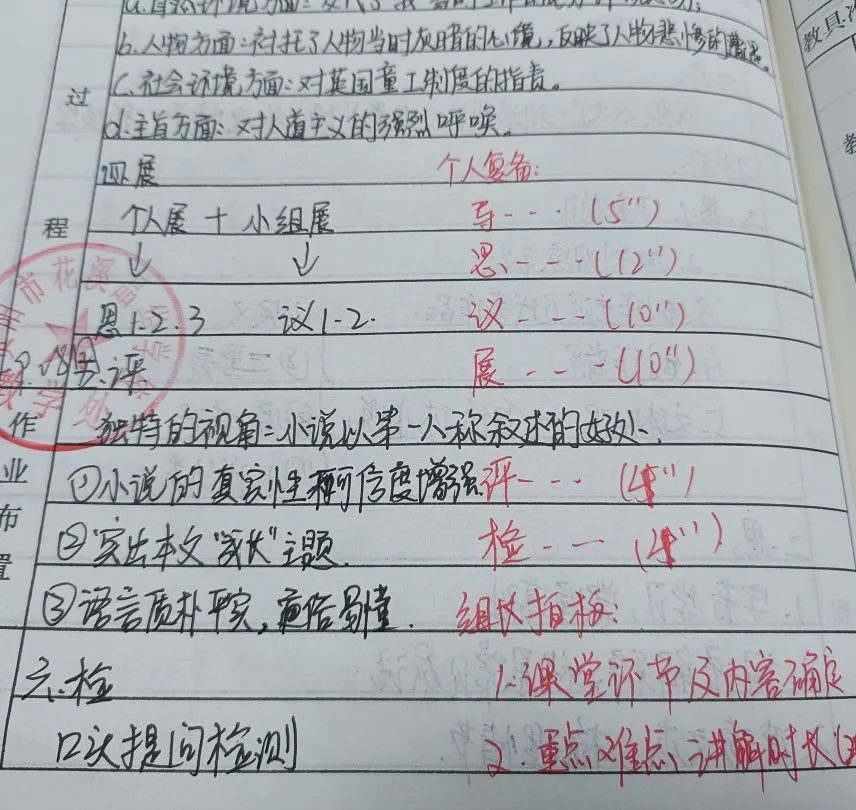 b.人物方面:衬托了人物当时灰暗的心境,反映了人物悲惨的遭遇。
c.社会环境方面:对英国童工制度的指责。
d.主旨方面:对人道主义的强烈呼唤。
过
四.展
个人复备:
程
个人展 + 小组展
导---(5")
↓ ↓
思---(12")
思1.2.3 议1-2.
议---(10")
五.评
展---(10")
作
独特的视角:小说以第一人称叙述的好处、
业
①小说的真实性和可信度增强
评---(4")
布
②突出本文"成长"主题.
检---(4")
置
③语言质朴平实,通俗易懂.
组长拍板:
六.检
1.课堂环节及内容确定
口头提问检测
2.重点难点、讲解时长
教具
市花溪
学
处